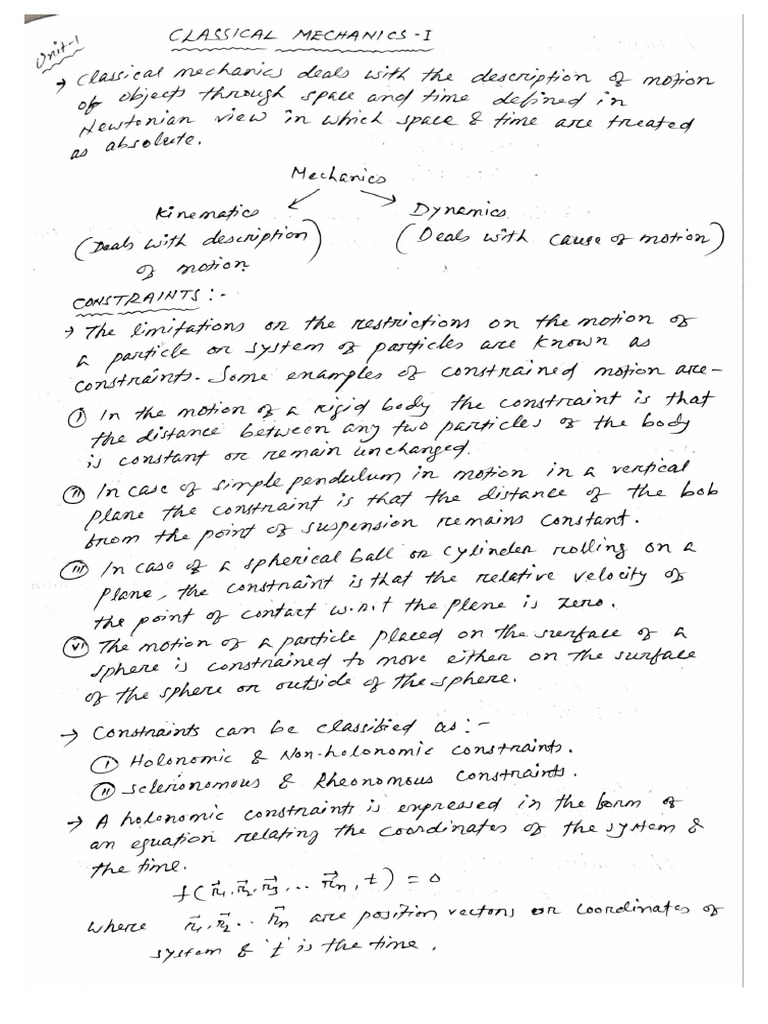 Unit-1
CLASSICAL MECHANICS-I
→ Classical mechanics deals with the description of motion
of objects through space and time defined in
Newtonian view in which space & time are treated
as absolute.
Mechanics
Kinematics Dynamics
(Deals with description (Deals with cause of motion)
of motion)
CONSTRAINTS :-
→ The limitations or the restrictions on the motion of
a particle or system of particles are known as
constraints. Some examples of constrained motion are-
(i) In the motion of a rigid body the constraint is that
the distance between any two particles of the body
is constant or remain unchanged.
(ii) In case of simple pendulum in motion in a vertical
plane the constraint is that the distance of the bob
from the point of suspension remains constant.
(iii) In case of a spherical ball or cylinder rolling on a
plane, the constraint is that the relative velocity of
the point of contact w.r.t the plane is zero.
(vi) The motion of a particle placed on the surface of a
sphere is constrained to move either on the surface
of the sphere or outside of the sphere.
→ Constraints can be classified as :-
(i) Holonomic & Non-holonomic constraints.
(ii) Scleronomous & Rheonomous constraints.
→ A holonomic constraints is expressed in the form of
an equation relating the coordinates of the system &
the time.
f(r⃗₁, r⃗₂, r⃗₃, ... r⃗n, t) = 0
where r⃗₁, r⃗₂... r⃗n are position vectors or coordinates of
system & 't' is the time.